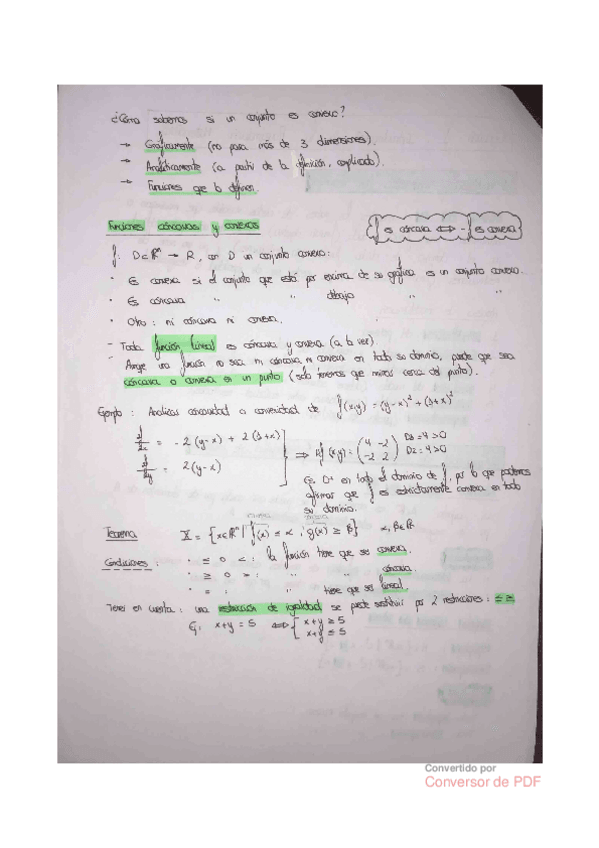 ¿Cómo sabemos si un conjunto es convexo?
→ Gráficamente (no para más de 3 dimensiones).
→ Analíticamente (a partir de la definición, complicado).
→ Funciones que lo definen.
Funciones cóncavas y convexas
f es cóncava ⟺ -f es convexa
f: D⊂ℝⁿ → ℝ, con D un conjunto convexo:
· Es convexa si el conjunto que está por encima de su gráfica es un conjunto convexo.
· Es cóncava " " debajo " "
· Otro: ni cóncava ni convexa.
- Toda función lineal es cóncava y convexa (a la vez).
- Aunque una función no sea ni cóncava ni convexa en todo su dominio, puede que sea
cóncava o convexa en un punto (solo tenemos que mirar cerca del punto).
Ejemplo: Analizar concavidad o convexidad de f(x,y) = (y-x)² + (1+x)²
∂f/∂x = -2(y-x) + 2(1+x)
∂f/∂y = 2(y-x)
⟹ Hf(x,y) = (4 -2; -2 2) D₁=4>0 D₂=4>0
Es D+ en todo el dominio de f, por lo que podemos
afirmar que f es estrictamente convexa en todo
su dominio.
Teorema X = {x∈ℝⁿ | f(x) ≤ α, g(x) ≥ β} α, β∈ℝ
Condiciones: · ≤ o <: la función tiene que ser convexa.
· ≥ o >: " " cóncava.
· =: " tiene que ser lineal.
Tener en cuenta: una restricción de igualdad se puede sustituir por 2 restricciones: ≤ ≥
Ej: x+y = 5 ⟺ { x+y ≥ 5
x+y ≤ 5
Convertido por
Conversor de PDF